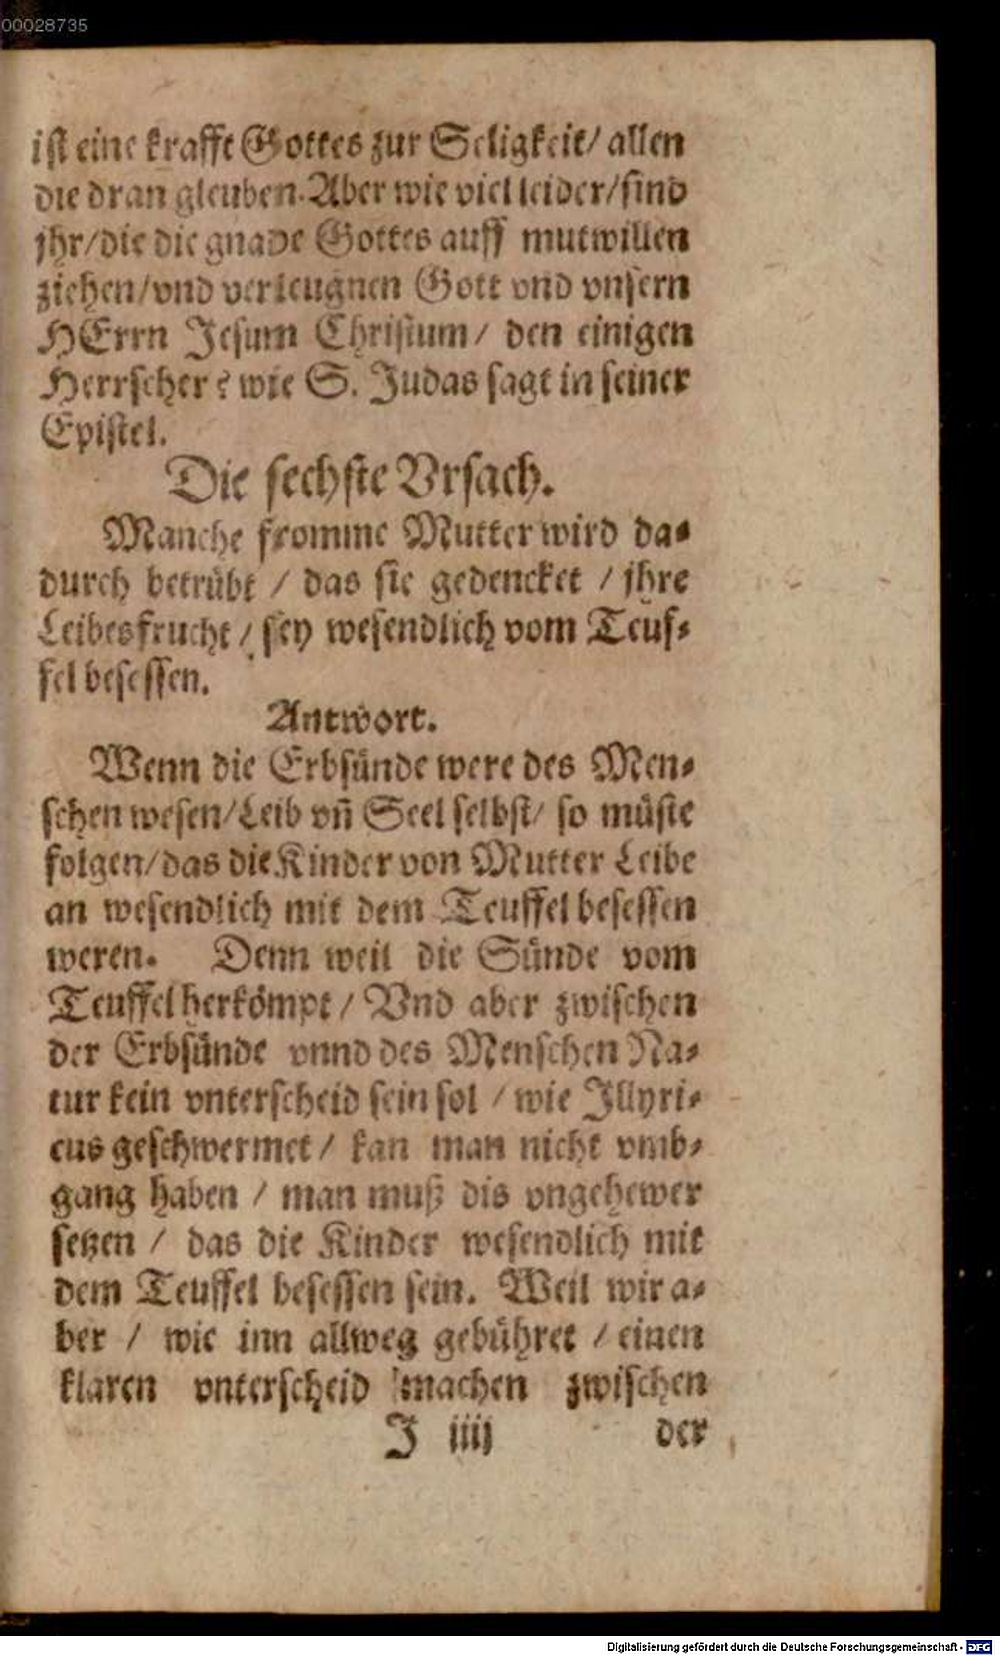 00028735
ist eine krafft Gottes zur Seligkeit/ allen
die dran gleuben. Aber wie viel leider/ sind
jhr/ die die gnade Gottes auff mutwillen
ziehen/ vnd verleugnen Gott vnd vnsern
HErrn Jesum Christum/ den einigen
Herrscher? wie S. Judas sagt in seiner
Epistel.
Die sechste Vrsach.
Manche fromme Mutter wird da-
durch betrübt / das sie gedencket / jhre
Leibesfrucht / sey wesendlich vom Teuf-
fel besessen.
Antwort.
Wenn die Erbsünde were des Men-
schen wesen/ Leib vñ Seel selbst/ so müste
folgen/ das die Kinder von Mutter Leibe
an wesendlich mit dem Teuffel besessen
weren. Denn weil die Sünde vom
Teuffel herkömpt / Vnd aber zwischen
der Erbsünde vnnd des Menschen Na-
tur kein vnterscheid sein sol / wie Illyri-
cus geschwermet / kan man nicht vmb-
gang haben / man muß dis vngehewer
setzen / das die Kinder wesendlich mit
dem Teuffel besessen sein. Weil wir a-
ber / wie inn allweg gebühret / einen
klaren vnterscheid machen zwischen
J iiij der
Digitalisierung gefördert durch die Deutsche Forschungsgemeinschaft - DFG